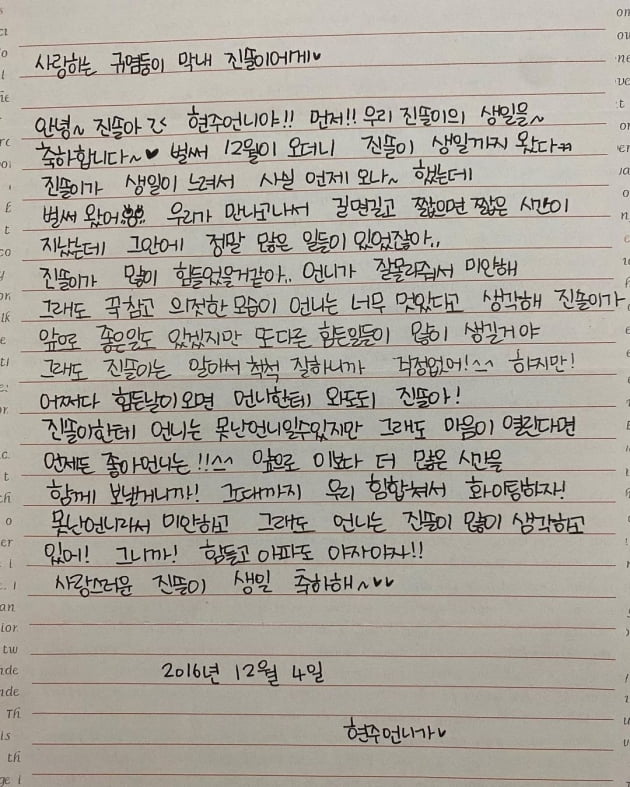 사랑하는 귀염둥이 막내 진쫄이에게♥
안녕~ 진쫄아 현주언니야!! 먼저!! 우리 진쫄이의 생일을~
축하합니다~♥ 벌써 12월이 오더니 진쫄이 생일까지 왔다ㅋㅋ
진쫄이가 생일이 느려서 사실 언제 오나~ 했는데
벌써 왔어 우리가 만나고나서 길면길고 짧으면 짧은 시간이
지났는데 그안에 정말 많은 일들이 있었잖아..
진쫄이가 많이 힘들었을거같아.. 언니가 잘몰라줘서 미안해
그래도 꾹참고 의젓한 모습이 언니는 너무 멋있다고 생각해 진쫄이가
앞으로 좋은일도 있겠지만 또다른 힘든일들이 많이 생길거야
그래도 진쫄이는 알아서 척척 잘하니까 걱정없어!^^ 하지만!
어쩌다 힘든날이오면 언니한테 와도되 진쫄아!
진쫄이한테 언니는 못난언니일수있지만 그래도 마음이 열린다면
언제든 좋아언니는!!^^ 앞으로 이보다 더 많은 시간을
함께 보낼거니까! 그때까지 우리 힘합쳐서 화이팅하자!
못난언니라서 미안하고 그래도 언니는 진쫄이 많이 생각하고
있어! 그니까! 힘들고 아파도 아자아자!!
사랑스러운 진쫄이 생일 축하해~♥♥
2016년 12월 4일
현주언니가♥